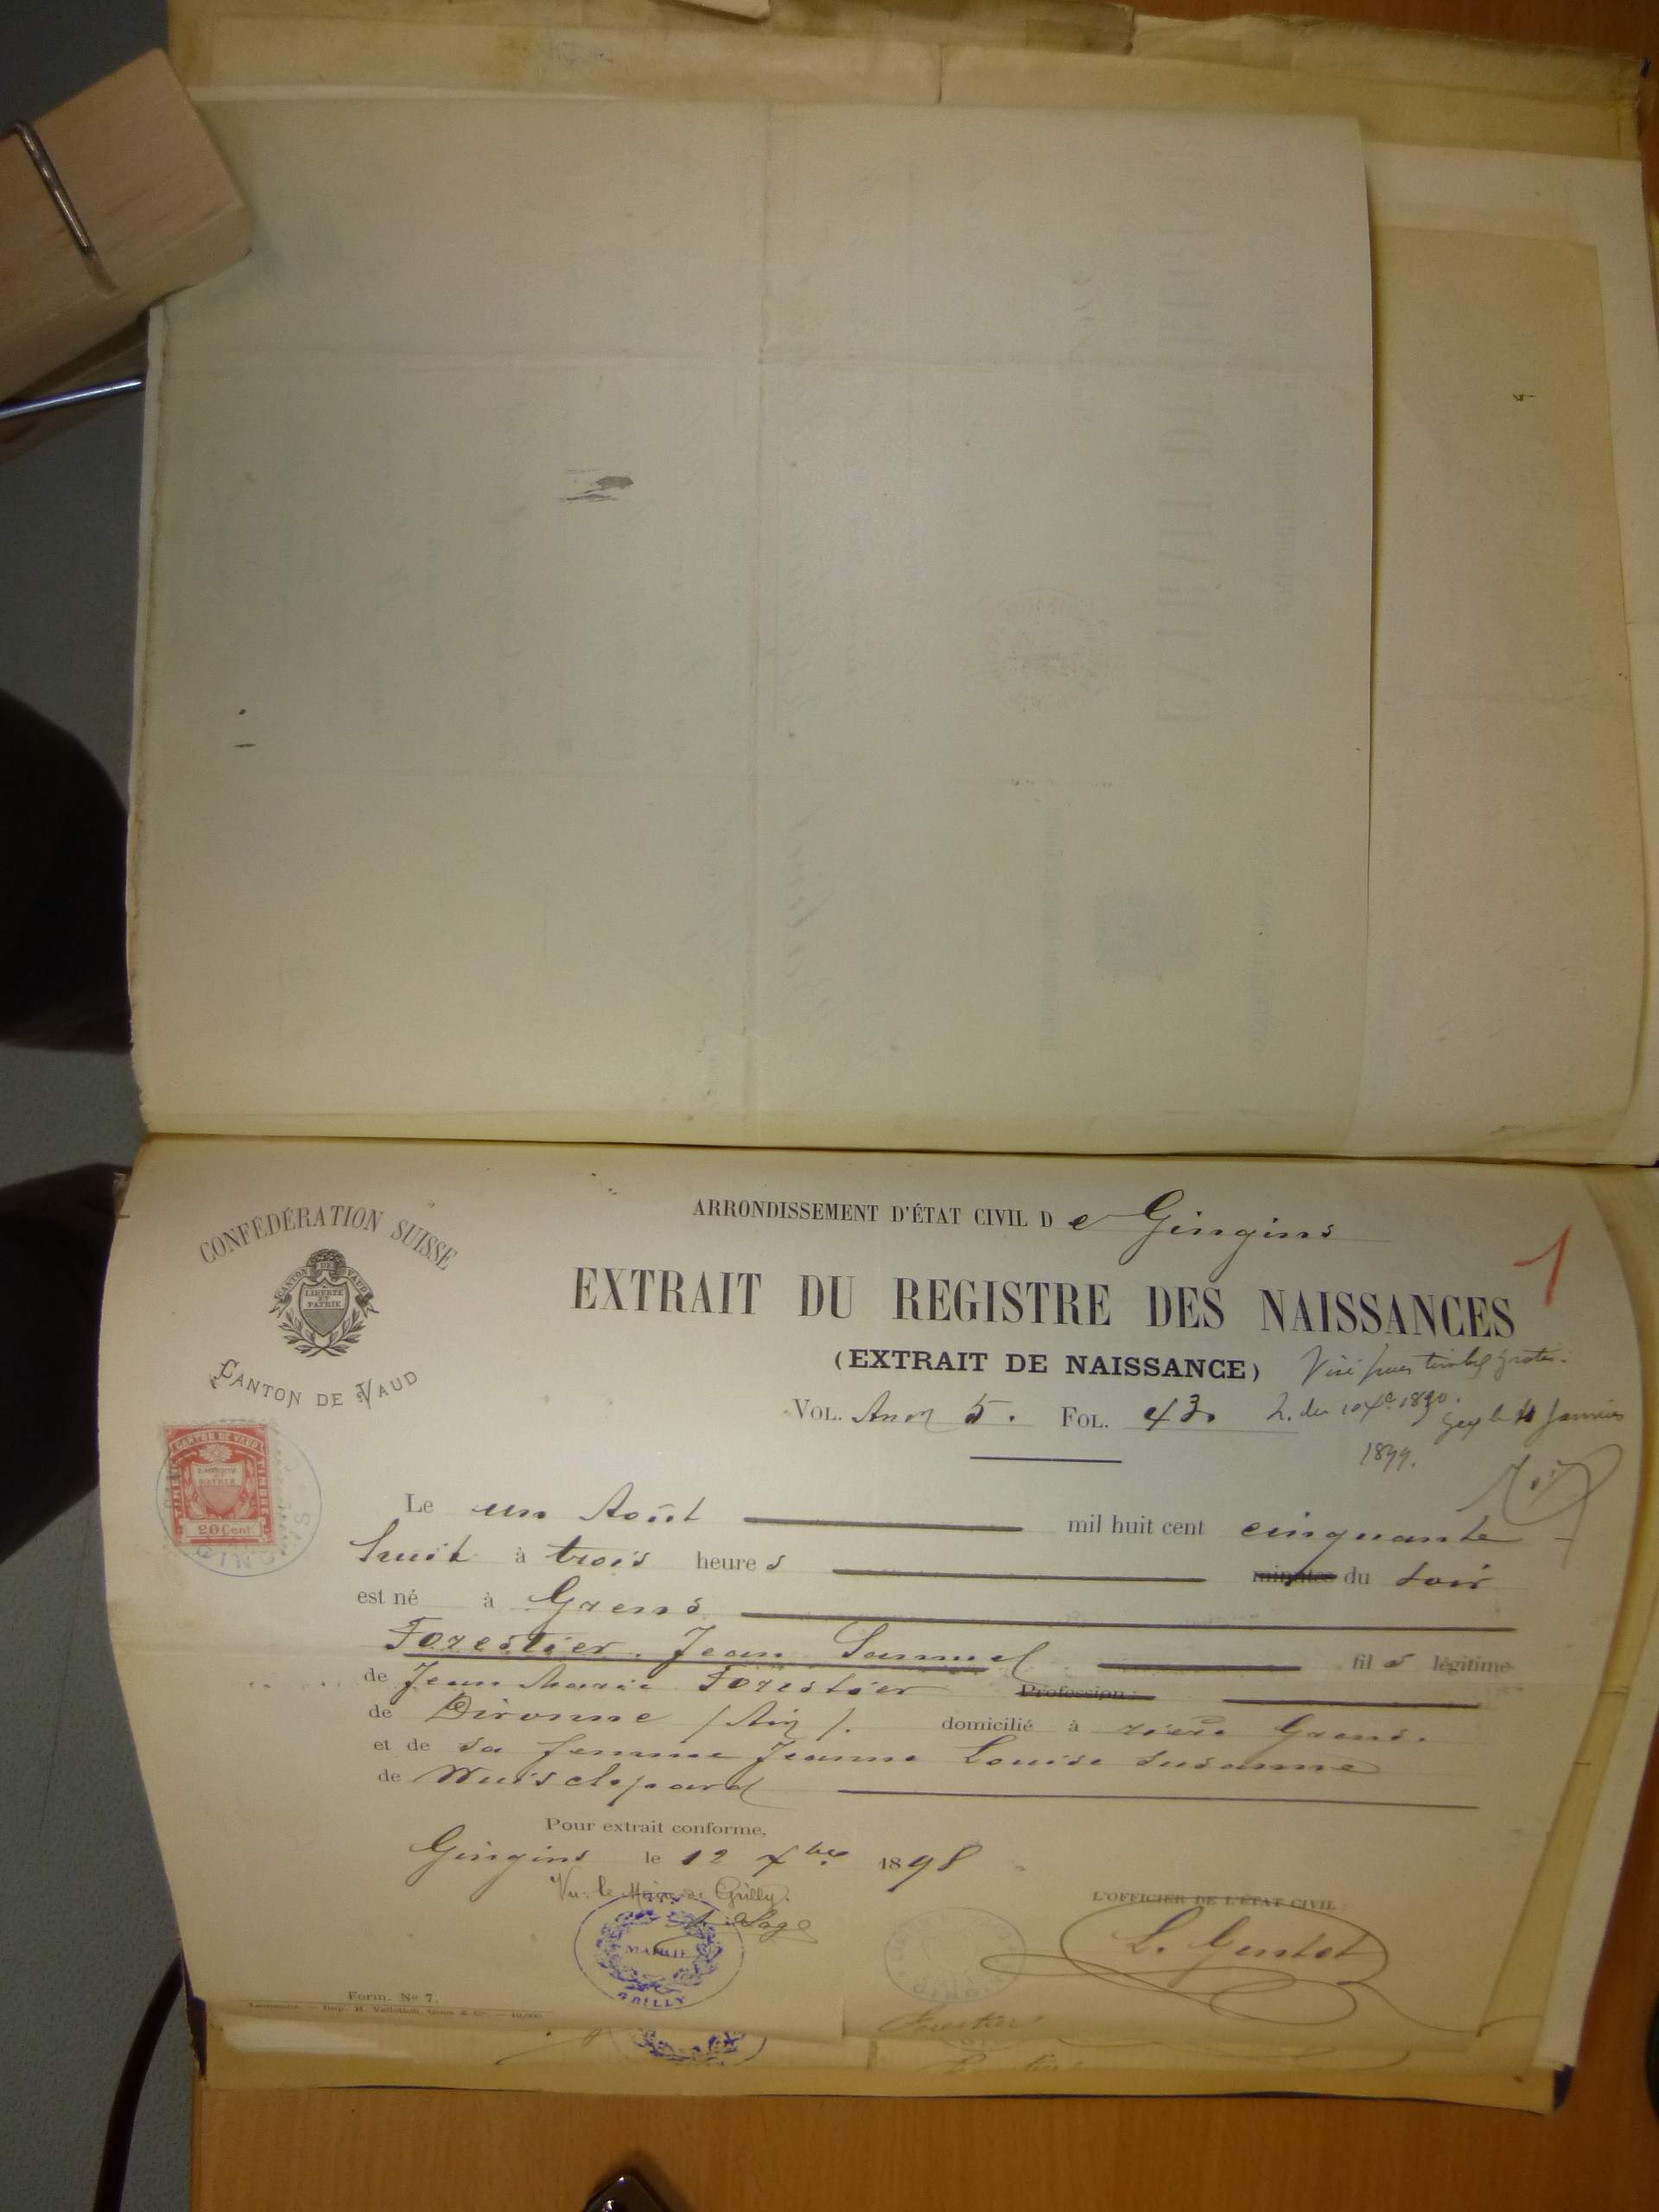 CONFÉDÉRATION SUISSE
CANTON DE VAUD
LIBERTÉ ET PATRIE
CANTON DE VAUD
ARRONDISSEMENT D'ÉTAT CIVIL De Gingins
1
EXTRAIT DU REGISTRE DES NAISSANCES
(EXTRAIT DE NAISSANCE)
Visé pour timbre gratis.
VOL. 5. FOL. 43.
Gex le Janvier
1899.
CANTON DE VAUD
20 Cent
Le un Août mil huit cent cinquante
huit à trois heures minutes du soir
est né à Grens
Forestier. Jean Samuel fils légitime
de Jean Marie Forestier Profession:
de Divonne /Ain/. domicilié à rière Grens.
et de sa femme Jeanne Louise Susanne
de
Pour extrait conforme,
Gingins le 12 Xbre 1898
Vu: le Maire de Grilly.
MAIRIE
GRILLY
L'OFFICIER DE L'ÉTAT CIVIL:
Form. No 7.
Forestier